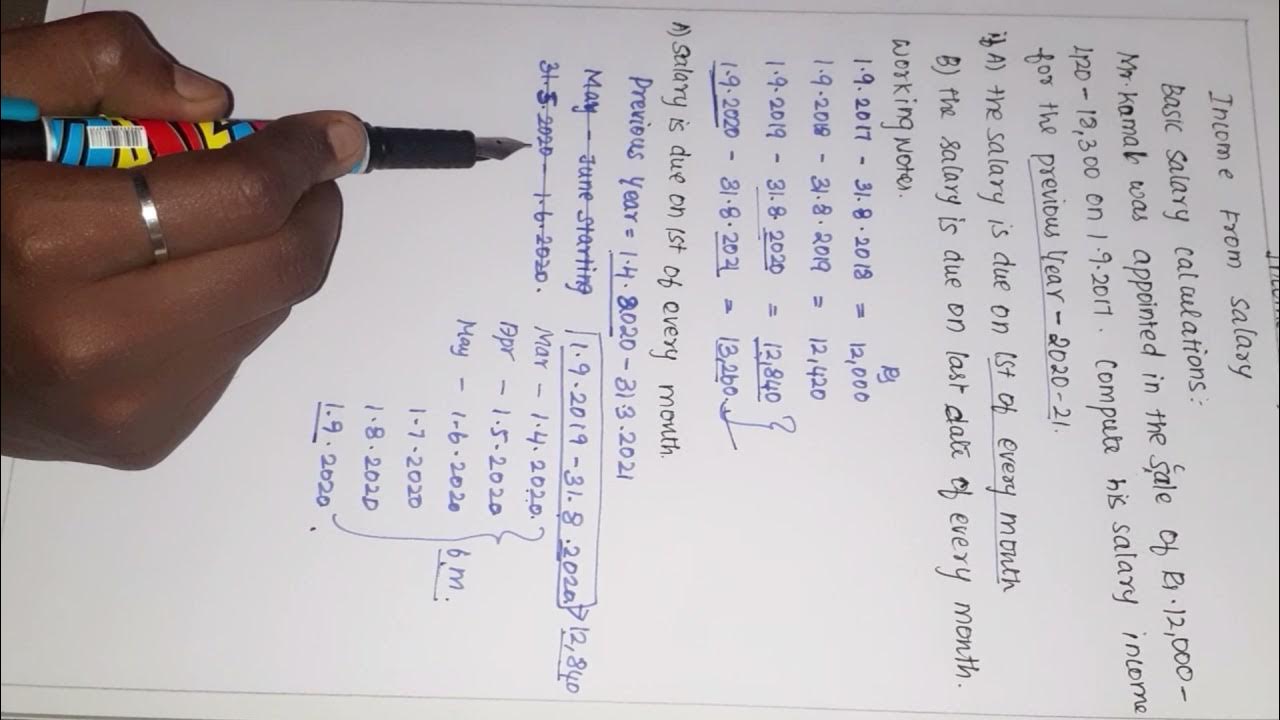 Income From Salary
Basic salary calculations:-
Mr. Kamal was appointed in the Scale of Rs. 12,000-
420-18,300 on 1.9.2017. Compute his salary income
for the previous year-2020-21.
if A) the salary is due on 1st of every month
B) the salary is due on last date of every month.
Working notes.
Rs
1.9.2017 - 31.8.2018 = 12,000
1.9.2018 - 31.8.2019 = 12,420
1.9.2019 - 31.8.2020 = 12,840
1.9.2020 - 31.8.2021 = 13,260
A) Salary is due on 1st of every month.
Previous year = 1.4.2020 - 31.3.2021
May - June starting
31.5.2020 - 1.6.2020.
1.9.2019 - 31.8.2020 12,840
Mar - 1.4.2020.
Apr - 1.5.2020
May - 1.6.2020 6m.
1.7.2020
1.8.2020
1.9.2020.